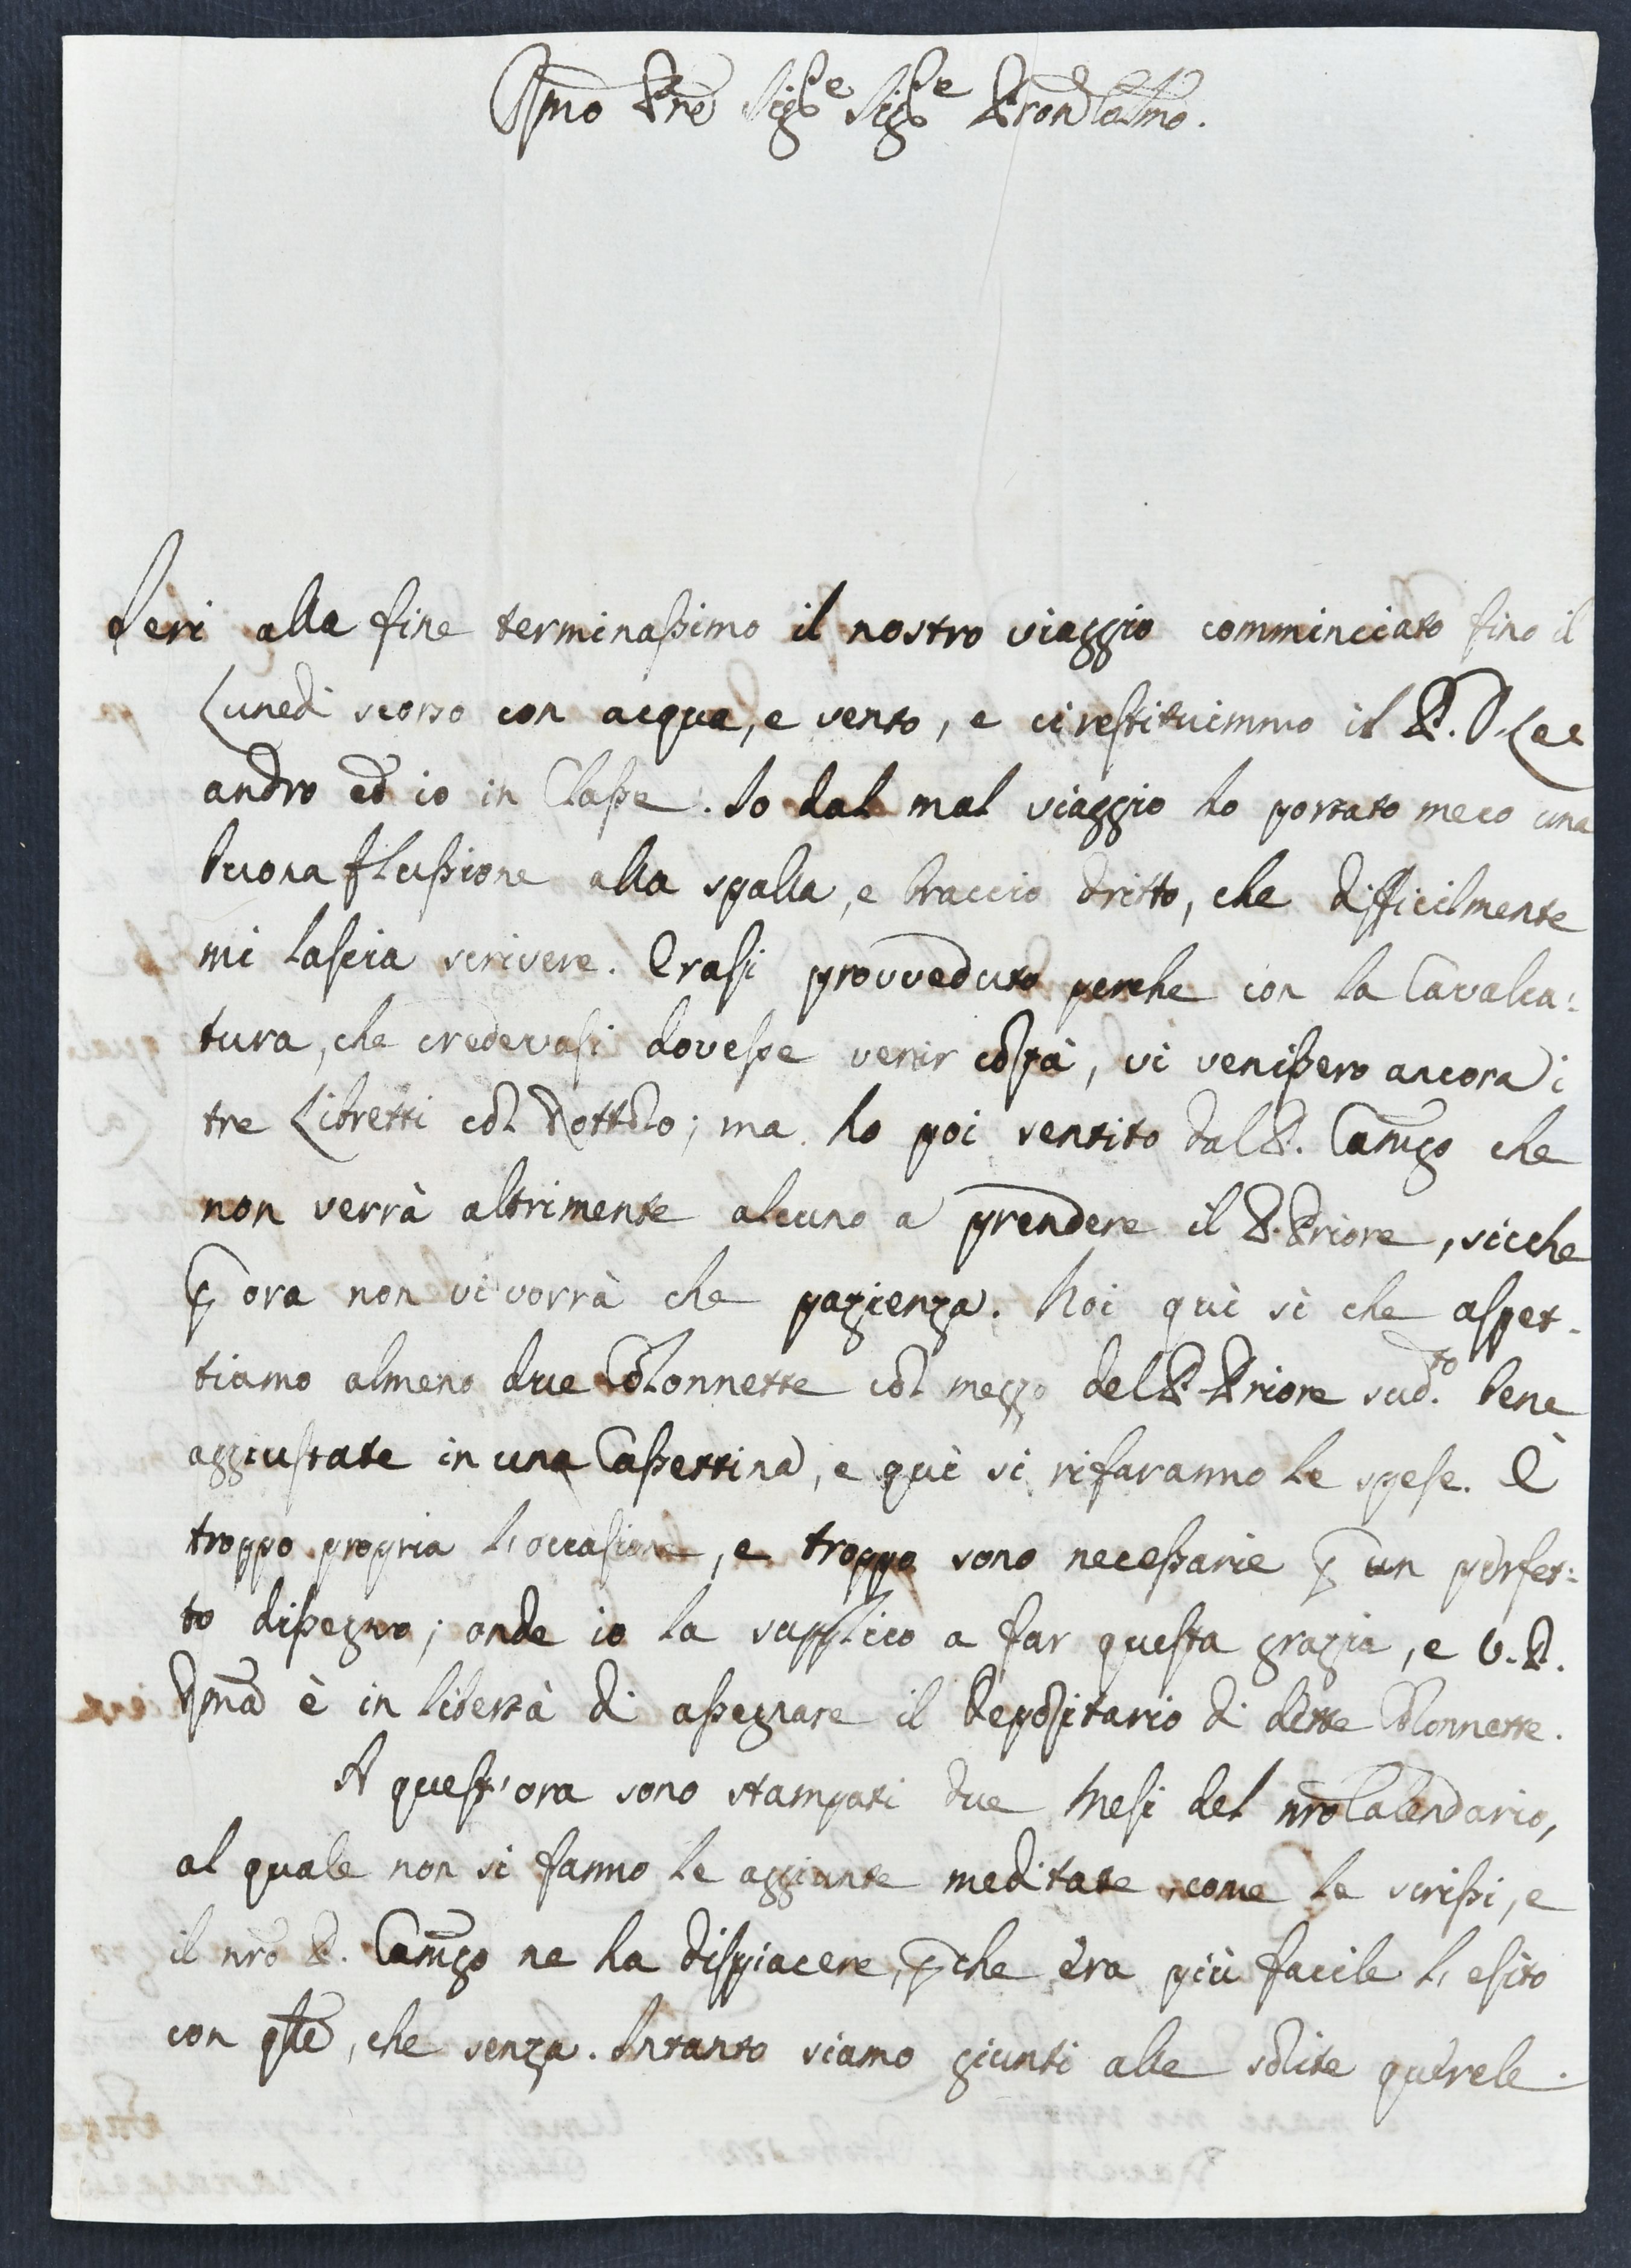 Rmo Pre Sigre Sigre Pron Colmo.
Ieri alla fine terminassimo il nostro viaggio comminciato fino il
Lunedi scorso con acqua, e vento, e ci restituimmo il P. D. Le
andro ed io in Classe. Io dal mal viaggio ho portato meco una
buona flussione alla spalla, e braccio dritto, che difficilmente
mi lascia scrivere. Erasi provveduto perche con la Cavalca:
tura, che credevasi dovesse venir costà, vi venissero ancora i
tre Libretti col ; ma ho poi sentito dal P. Camgo che
non verrà altrimente alcuno a prendere il P. Priore, sicche
p ora non vi vorrà che pazienza. Noi quì sì che aspet-
tiamo almeno due Colonnette col mezzo del P. Priore sudto. bene
aggiustate in una Cassettina, e quì si rifaranno le spese. È
troppo propria l'occasione, e troppo sono necessarie p un perfet:
to dissegno; onde io la supplico a far questa grazia, e V. P.
Rma è in libertà di assegnare il Depositario di dette Colonnette.
A quest'ora sono stampati due Mesi del nro Calendario,
al quale non si fanno le aggiunte meditate come le scrissi, e
il nro P. Camgo ne ha dispiacere, pche era più facile l'esito
con qte, che senza. Intanto siamo giunti alle solite querele.